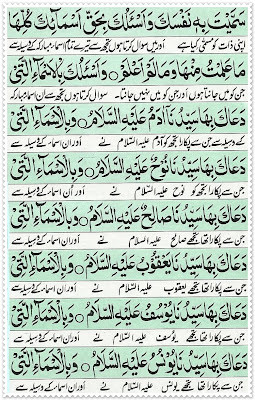 سَمَّيْتَ بِهٖ نَفْسَكَ وَاَسْئَلُكَ بِحَقِّ اَسْمَآئِكَ كُلِّهَا
اپنی ذات کو مسمّٰی کیا ہے اور میں سوال کرتا ہوں تجھ سے تیرے تمام اسماء مبارکہ کے وسیلہ سے
مَا عَلِمْتُ مِنْهَا وَمَا لَمْ اَعْلَمْ ○ وَاَسْئَلُكَ بِالْاَسْمَآءِ الَّتِيْ
جن کو میں جانتا ہوں اور جن کو میں نہیں جانتا۔ سوال کرتا ہوں تجھ سے ان اسماء مبارکہ
دَعَاكَ بِهَا سَيِّدُنَا آدَمُ عَلَيْهِ السَّلَامُ ○ وَبِالْاَسْمَآءِ الَّتِيْ
کے وسیلہ سے جن سے پکارا تجھ کو آدم علیہ السلام نے اور ان اسماء کے وسیلہ سے
دَعَاكَ بِهَا سَيِّدُنَا نُوْحٌ عَلَيْهِ السَّلَامُ ○ وَبِالْاَسْمَآءِ الَّتِيْ
جن سے پکارا تھا تجھے نوح علیہ السلام نے اور ان اسماء کے وسیلہ سے
دَعَاكَ بِهَا سَيِّدُنَا صَالِحٌ عَلَيْهِ السَّلَامُ ○ وَبِالْاَسْمَآءِ الَّتِيْ
جن سے پکارا تھا تجھے صالح علیہ السلام نے اور ان اسماء کے وسیلہ سے
دَعَاكَ بِهَا سَيِّدُنَا يَعْقُوْبُ عَلَيْهِ السَّلَامُ ○ وَبِالْاَسْمَآءِ الَّتِيْ
جن سے پکارا تھا تجھے یعقوب علیہ السلام نے اور ان اسماء کے وسیلہ سے
دَعَاكَ بِهَا سَيِّدُنَا يُوْسُفُ عَلَيْهِ السَّلَامُ ○ وَبِالْاَسْمَآءِ الَّتِيْ
جن سے پکارا تھا تجھے یوسف علیہ السلام نے اور ان اسماء کے وسیلہ سے
دَعَاكَ بِهَا سَيِّدُنَا يُوْنُسُ عَلَيْهِ السَّلَامُ ○ وَبِالْاَسْمَآءِ الَّتِيْ
جن سے پکارا تھا تجھے یونس علیہ السلام نے اور ان اسماء کے وسیلہ سے